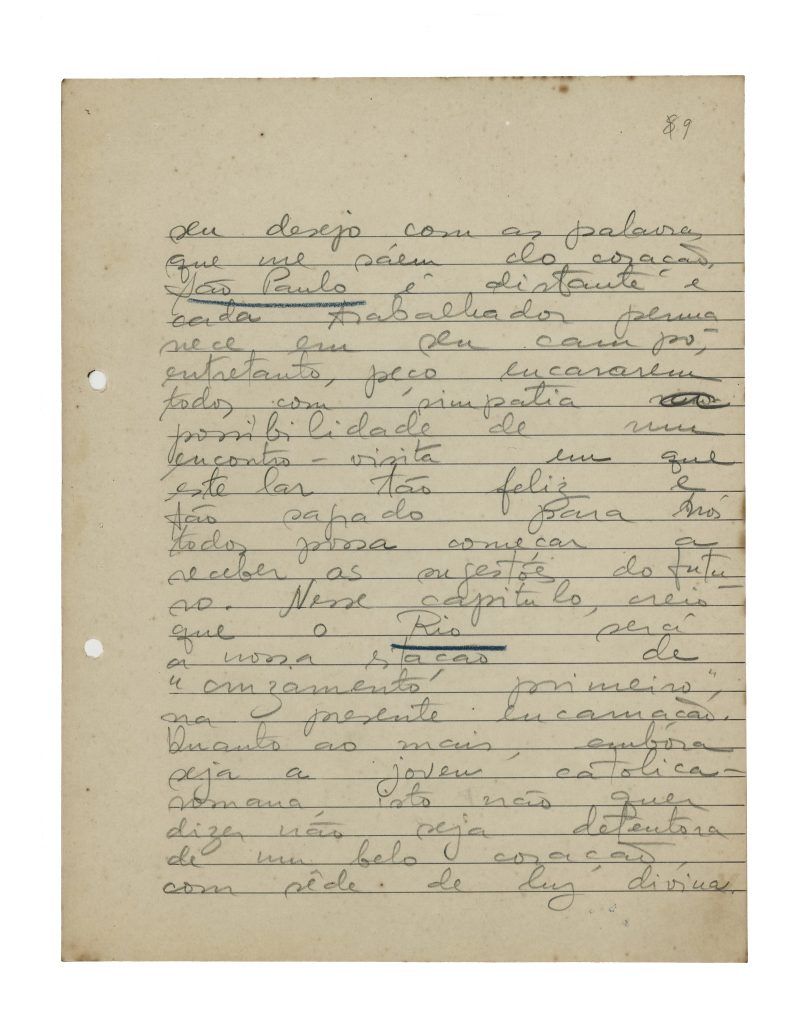 89
seu desejo com as palavras
que me sáem do coração.
São Paulo é distante e
cada trabalhador perma
nece em seu campo,
entretanto, peço encararem
todos com simpatia
possibilidade de um
encontro-visita em que
este lar tão feliz e
tão sagrado para nós
todos possa começar a
receber as sugestões do futu-
ro. Nesse capitulo, creio
que o Rio será
a nossa estação de
"cruzamento primeiro",
na presente encarnação.
Quanto ao mais, embóra
seja a joven catolica-
romana, isto não quer
dizer não seja detentora
de um belo coração
com sêde de luz divina.